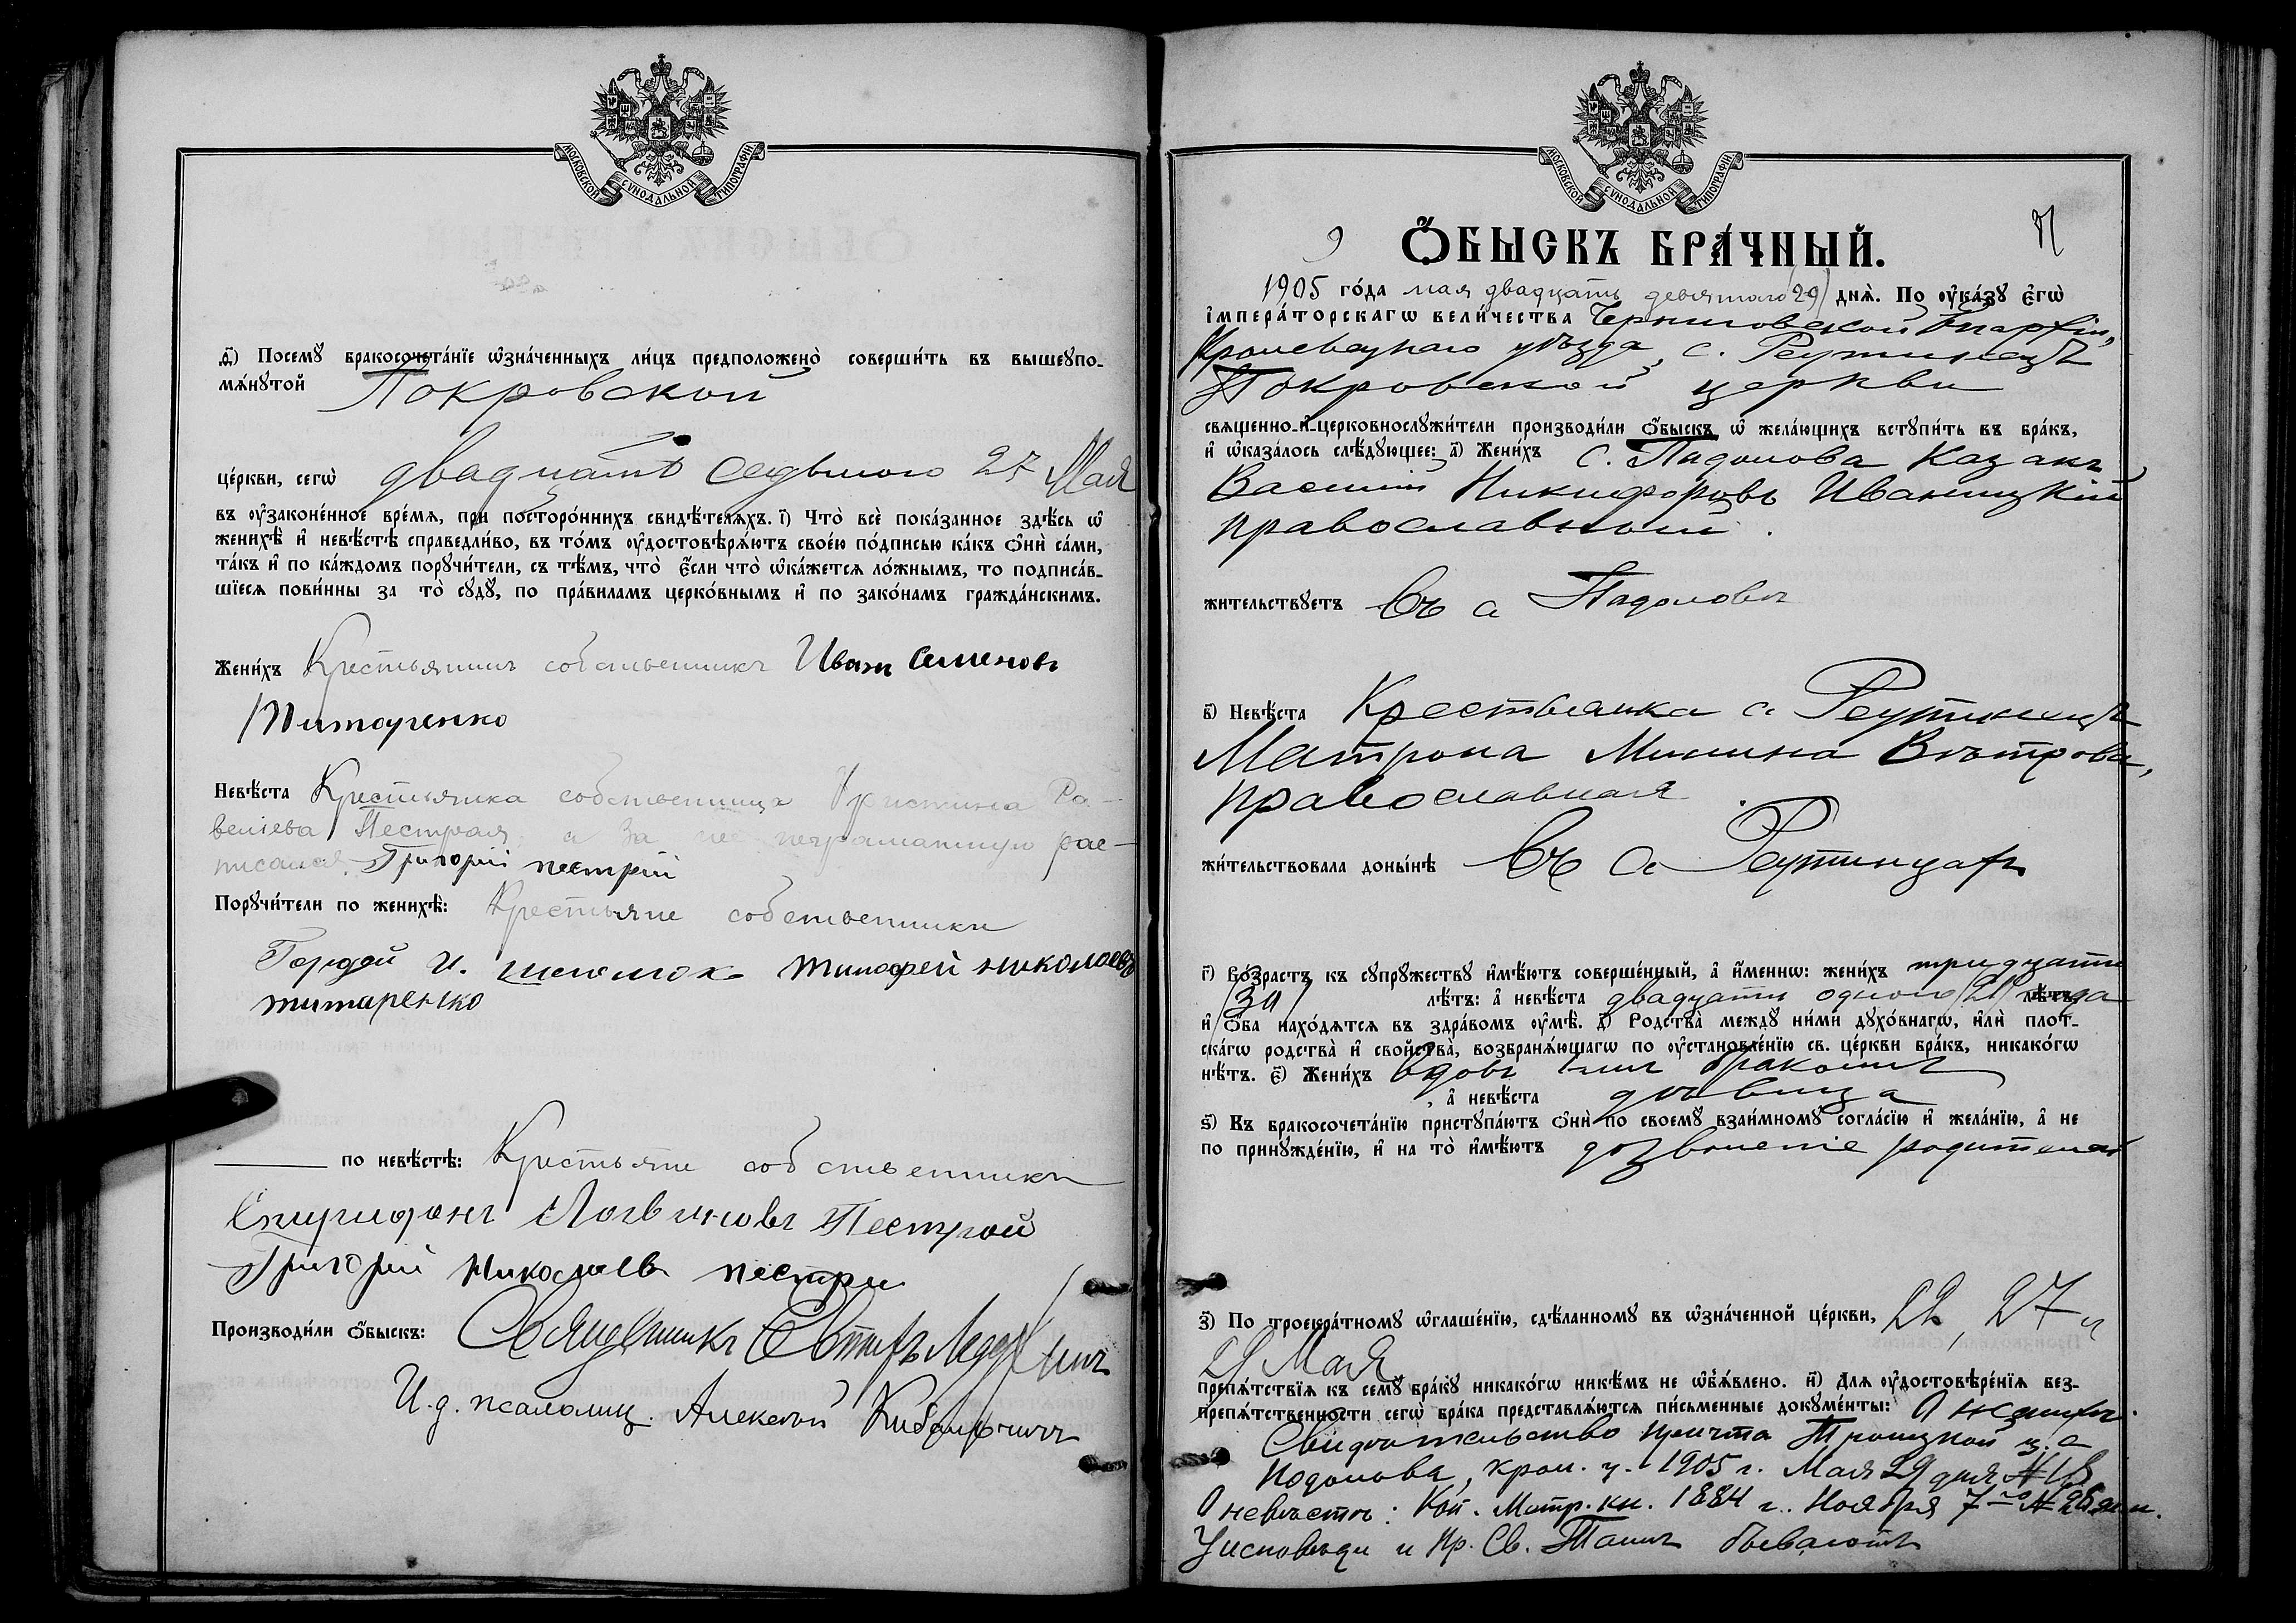 МОСКОВСКОЙ СѴНОДАЛЬНОЙ ТИПОГРАФІИ
д҃) Посемꙋ бракосочета́нїе ѡ҆зна́ченныхъ ли́цъ предположено̀ соверши́ть въ вышеупо-
мѧ́нꙋтой Покровской
це́ркви, сегѡ̀ двадцать седьмого 27 Мая
въ ᲂу҆законе́нное вре́мѧ, при посторо́ннихъ свидѣ́телѧхъ. і҃) Что̀ всѐ пока́занное здѣ́сь ѡ҆
женихѣ̀ и҆ невѣ́стѣ справедли́во, въ то́мъ ᲂу҆достовѣрѧ́ютъ свое́ю по́дписью ка́къ ѻ҆нѝ са́ми,
та́къ и҆ по ка́ждомъ порꙋчи́тели, съ тѣ́мъ, что̀ є҆́сли что̀ ѡ҆ка́жетсѧ ло́жнымъ, то подписа́в-
шїесѧ пови́нны за то̀ сꙋдꙋ̀, по пра́виламъ церко́внымъ и҆ по зако́намъ гражда́нскимъ.
Жени́хъ Крестьянинъ собственникъ Иван Семеновъ
Титаренко
Невѣ́ста Крестьянка собственница Христина Са-
вельева Пестрая, а за не неграматную рос-
писался Григорий пестрий
Порꙋчи́тели по женихѣ̀: Крестьяне собственники
Гордей И. тимофей николаевъ
титаренко
по невѣ́стѣ: Крестьяне собственники
Спиридонъ Логвиновъ Пестрой
Григорий Николаев пестри
Производи́ли ѻ҆́быскъ: Священникъ
И. д. псаломщ. Алексѣй
МОСКОВСКОЙ СѴНОДАЛЬНОЙ ТИПОГРАФІИ
9
Ѻ҆́БЫСКЪ БРА́ЧНЫЙ.
1905 го́да мая двадцать девятаго (29) днѧ̀. По ᲂу҆ка́зꙋ є҆гѡ̀
і҆мпера́торскагѡ вели́чества Черниговской Епархіи,
Кролевецкаго уѣзда, с. Реутинецъ
Покровской церкви
свѧщенно-и҆-церковнослꙋжи́тели производи́ли ѻ҆́быскъ ѡ҆ жела́ющихъ встꙋпи́ть въ бра́къ,
и҆ ѡ҆каза́лось слѣ́дꙋющее: а҃) Жени́хъ с. Падолова Казакъ
Василій Никифоровъ Иваницкій
православный.
жи́тельствꙋетъ Въ с Падоловѣ
в҃) Невѣ́ста Крестьянка с Реутинецъ
Матрона Минина Вѣтрова,
православная.
жи́тельствовала доны́нѣ Въ с Реутинцахъ
г҃) Во́зрастъ къ сꙋпрꙋ́жествꙋ и҆мѣ́ютъ соверше́нный, а҆ и҆́меннѡ: жени́хъ тридцати
/30/ лѣ́тъ: а҆ невѣ́ста двадцати одного /21/ года
и҆ ѻ҆́ба нахо́дѧтсѧ въ здра́вомъ ᲂу҆мѣ̀. д҃) Родства̀ междꙋ ни́ми дꙋхо́внагѡ, и҆лѝ плот-
ска́гѡ родства̀ и҆ свойства̀, возбранѧ́ющагѡ по ᲂу҆становле́нїю св. це́ркви бра́къ, никако́гѡ
нѣ́тъ. є҃) Жени́хъ вдовъ бракомъ
, а҆ невѣ́ста дѣвица
ѕ҃) Къ бракосочета́нїю пристꙋпа́ютъ ѻ҆нѝ по своемꙋ̀ взаи́мномꙋ согла́сїю и҆ жела́нїю, а҆ не
по принꙋжде́нїю, и҆ на то̀ и҆мѣ́ютъ дозволеніе родителей
з҃) По троекра́тномꙋ ѡ҆глаше́нїю, сдѣ́ланномꙋ въ ѡ҆зна́ченной це́ркви, 22, 27 и
29 Мая
препѧ́тствїѧ къ семꙋ̀ бра́кꙋ никако́гѡ никѣ́мъ не ѡ҆б̾ѧ́влено. и҃) Длѧ ᲂу҆достовѣре́нїѧ без-
препѧ́тственности сегѡ̀ бра́ка представлѧ́ютсѧ пи́сьменные докꙋме́нты: О женихѣ:
Свидѣтельство причта Троицкой ц. с
Подолова, крол. у. 1905 г. Мая 29 дня №
О невѣстѣ: Коп. Метр. кн. 1884 г. Ноября 7-го №
У исповѣди и Пр. Св. Таинъ бываютъ